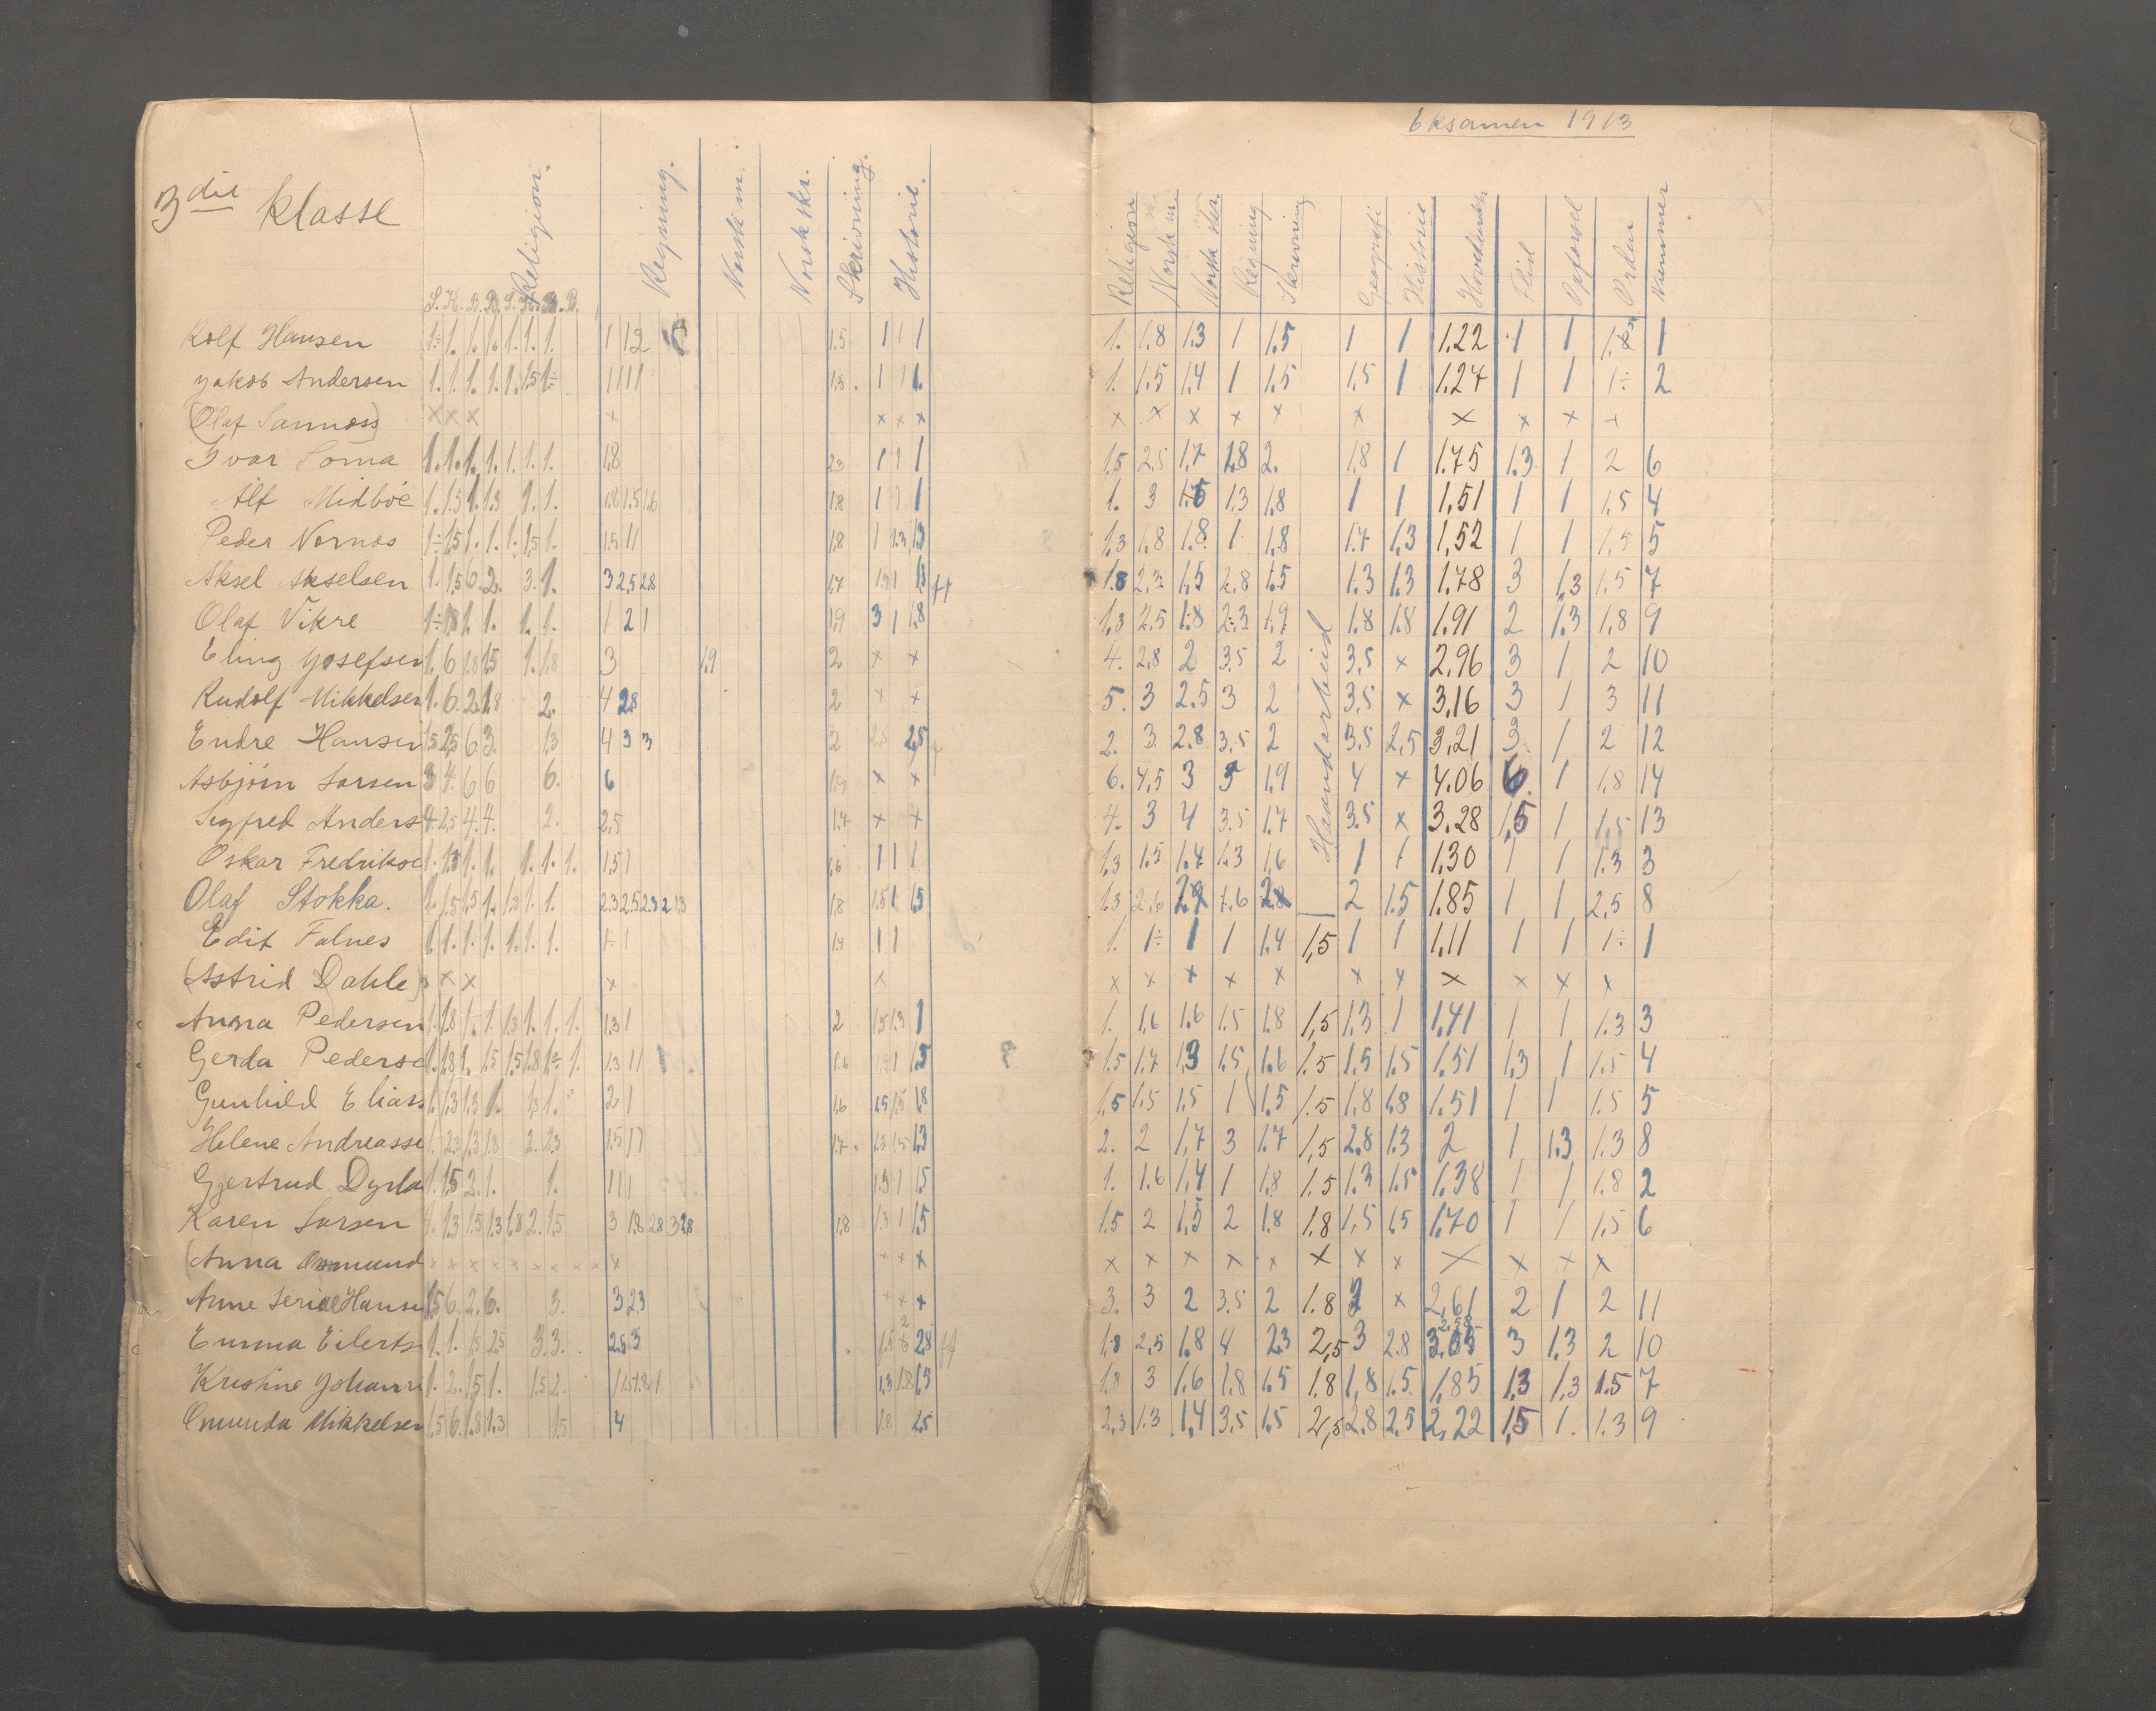 Eksamen 1913
3die klasse
Religion. Regning. Norsk m. Norsk skr. Skrivning. Historie.
S. K. B. B. S. K. B. B.
Religion Norsk m. Norsk skr. Regning Skrivning Geografi Historie Hovedkarakter Flid Opførsel Orden Nummer
Haandarbeid
Rolf Hansen 1÷ 1. 1. 1. 1. 1. 1. 1 1 2 1.5 1 1 1 1. 1.8 1.3 1 1.5 1 1 1.22 1 1 1
Jakob Andersen 1. 1. 1. 1. 1. 1.5 1÷ 1 1 1 1 1.5. 1 1 1. 1. 1.5 1.4 1 1.5 1.5 1 1.27 1 1 1÷ 2
(Olaf Sannæss) x x x x x x x x x x x x x x x x x
Ivar Soma 1. 1. 1. 1. 1. 1. 1. 1.8 2.3 1 1 1 1.5 2.5 1.7 1.8 2. 1.8 1 1.75 1.3 1 2 6
Alf Midbøe 1. 1.5 1. 1.3 1. 1. 1.8 1.5 1.6 1.8 1 1 1 1. 3 1.3 1.8 1 1 1.51 1 1 1.5 4
Peder Nornes 1÷ 1.5 1. 1. 1. 1.5 1. 1.5 1 1 1.8 1 1.3 1.3 1.3 1.8 1.8 1 1.8 1.7 1.3 1.52 1 1 1.5 5
Aksel Akselsen 1. 1.5 6. 2. 3. 1. 3 2.5 2.8 1.7 1.5 1 1.3 1.8 2.3 1.5 2.8 1.5 1.3 1.3 1.78 3 1.3 1.5 7
Olaf Vikre 1÷ 1.8 1. 1. 1. 1. 1 2 1 1.9 3 1 1.8 1.3 2.5 1.8 2.3 1.9 1.8 1.8 1.91 2 1.3 1.8 9
Eling Josefsen 1. 6 1.8 1.5 1. 1.8 3 1.9 2 x x 4. 2.8 2 3.5 2 3.5 x 2.96 3 1 2 10
Rudolf Mikkelsen 1. 6. 2. 1.8 2. 4 2.8 2 x x 5. 3 2.5 3 2 3.5 x 3.16 3 1 3 11
Endre Hansen 1.5 2.5 6 3. 1.3 4 3 3 2 2.5 2.5 2. 3 2.8 3.5 2 3.5 2.5 3.21 3 1 2 12
Asbjørn Larsen 3 4. 6 6 6. 6 1.9 x x 6. 4.5 3 1.9 4 x 4.06 6. 1 1.8 14
Sigfred Anders 4 2.5 4. 4. 2. 2.5 1.7 x x 4. 3 4 3.5 1.7 3.5 x 3.28 1.5 1 1.5 13
Oskar Fredrikse 1. 1.8 1. 1. 1. 1. 1. 1.5 1 1.6 1 1 1 1.3 1.5 1.4 1.3 1.6 1 1 1.30 1 1 1.3 3
Olaf Stokka. 1. 1.5 1.3 1. 1.3 1. 1. 2.3 2.5 2.3 2 1.3 1.8 1.5 1 1.5 1.3 2.6 1.6 2 1.5 1.85 1 1 2.5 8
Edit Falnes 1. 1. 1. 1. 1. 1. 1. 1÷ 1 1.4 1 1 1. 1÷ 1 1 1.4 1.5 1 1 1.11 1 1 1÷ 1
(Astrid Dahle) x x x x x x x x x x x x x x x x
Anna Pedersen 1. 1.8 1. 1. 1.3 1. 1. 1. 1.3 1 2 1.5 1.3 1 1. 1.6 1.6 1.5 1.8 1.5 1.3 1 1.41 1 1 1.3 3
Gerda Pederse 1. 1.8 1. 1.5 1.5 1.8 1÷ 1. 1.3 1 1 1.6 1 1.5 1.5 1.7 1.3 1.5 1.6 1.5 1.5 1.5 1.51 1.3 1 1.5 4
Gunhild Eliass 1. 1.3 1.3 1. 1.3 1. 2 1 1.6 1.5 1.5 1.8 1.5 1.5 1.5 1 1.5 1.5 1.8 1.8 1.51 1 1 1.5 5
Helene Andreasse 1. 2.3 1.3 1.8 2. 2.3 1.5 1 1 1.7. 1.3 1.5 1.3 2. 2 1.7 3 1.7 1.5 2.8 1.3 2 1 1.3 1.3 8
Gjertrud Dyrla 1. 1.5 2. 1. 1. 1 1 1 1.3 1 1.5 1. 1.6 1.4 1 1.8 1.5 1.3 1.5 1.38 1 1 1.8 2
Karen Larsen 1. 1.3 1.5 1.3 1.8 2. 1.5 3 1.8 2.8 3 2.8 1.8 1.3 1 1.5 1.5 2 1.5 2 1.8 1.8 1.5 1.5 1.70 1 1 1.5 6
(Anna Osmund x x x x x x x x x x x x x x x x x x x x x x x x x
Anne Serine Hanse 1.5 6. 2. 6. 3. 3 2.3 x x x 3. 3 2 3.5 2 1.8 x 2.61 2 1 2 11
Emma Eilerts 1. 1. 1.5 2.5 3. 3. 2.5 3 1.5 2.8 1.8 2.5 1.8 4 2.3 2.5 3 2.8 3.05 3 1.3 2 10
Kristine Johann 1. 2. 1.5 1. 1.5 2. 1 1.5 1.8 1 1.3 1.8 1.5 1.8 3 1.6 1.8 1.5 1.8 1.8 1.5 1.85 1.3 1.3 1.5 7
Omunda Mikkelsen 1.5 6. 1.8 1.3 1.5 4 1.8 2.5 2.3 1.3 1.4 3.5 1.5 2.5 2.8 2.5 2.22 1.5 1. 1.3 9